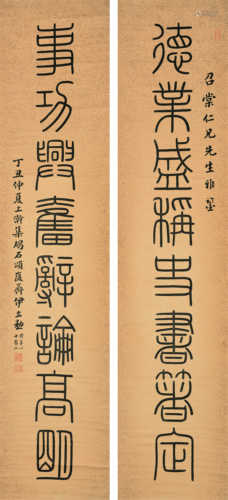 召棠仁兄先生雅鉴
德業盛稱史書著定
事功興奮辭論高明
丁丑仲夏上澣集碣石頌
伊立勳